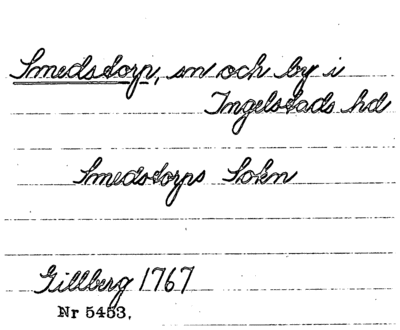 Smedstorp, sn och by i
Ingelstads hd
Smedstorps Sokn
Gillberg 1767
Nr 5453.